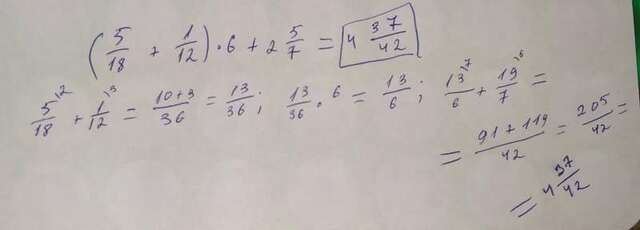 (5/18 + 1/12) · 6 + 2 5/7 = 4 37/42
5/18 \2 + 1/12 \3 = 10+3/36 = 13/36; 13/36 · 6 = 13/6; 13/6 \7 + 19/7 \6 =
= 91+119/42 = 205/42 =
= 4 37/42